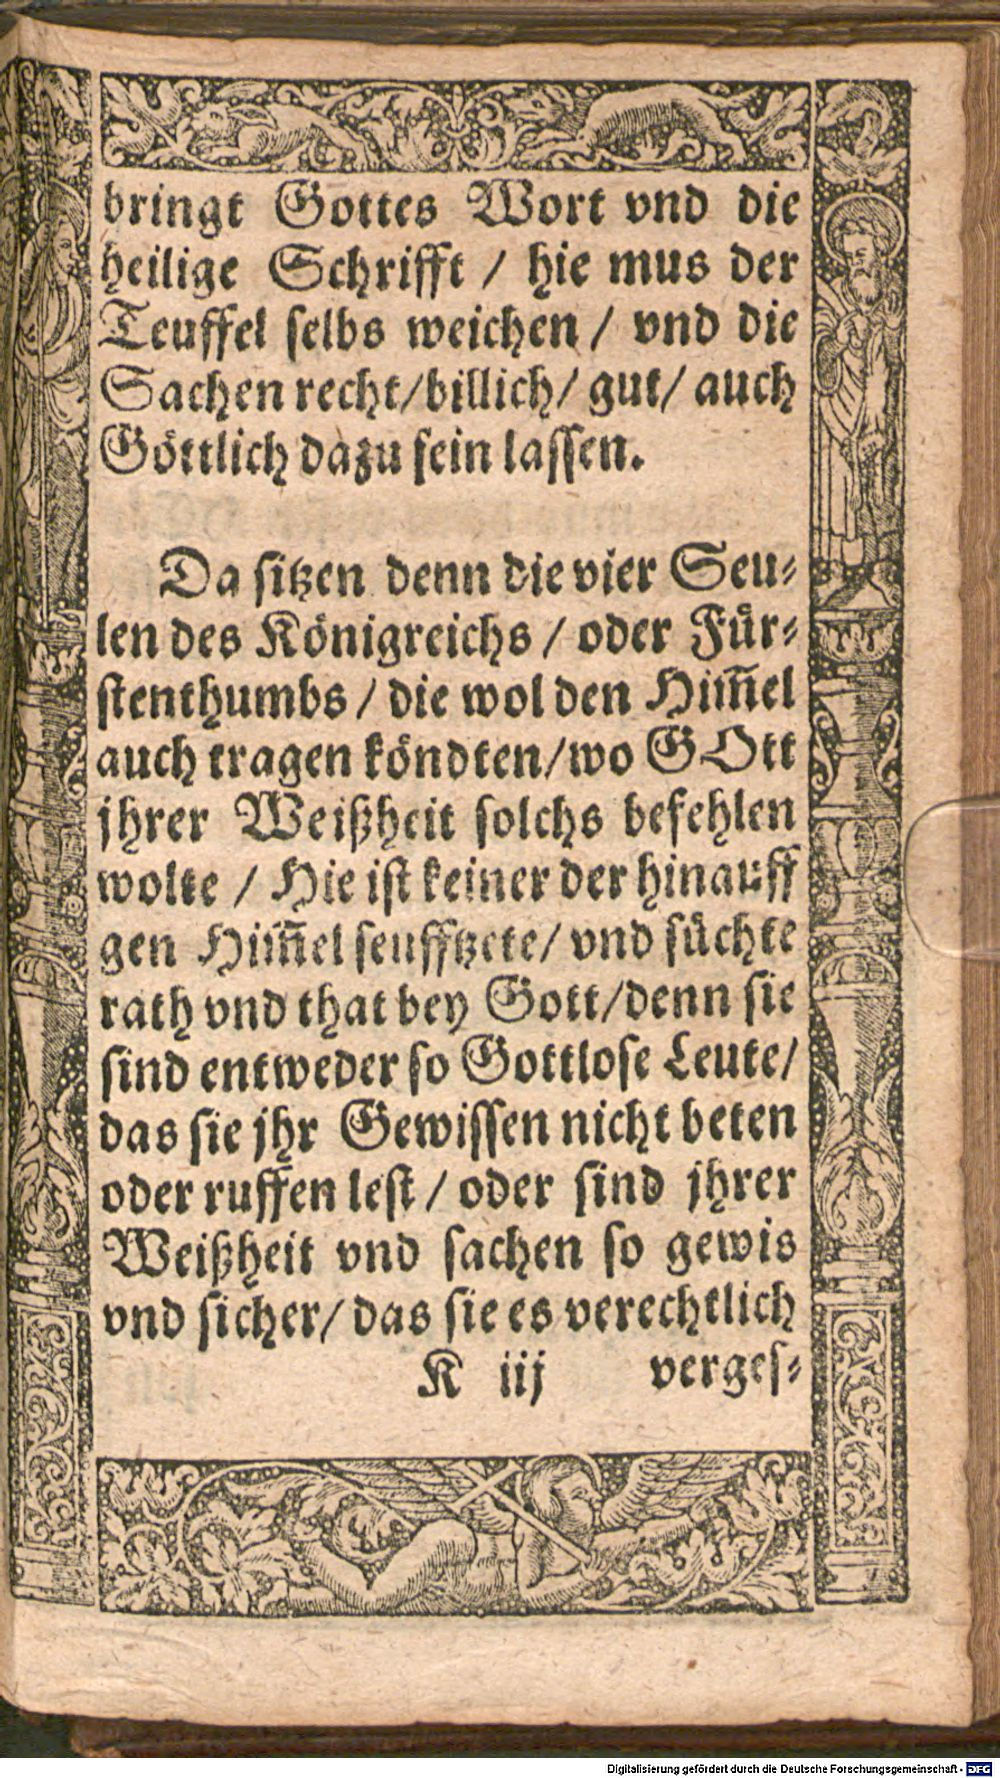 bringt Gottes Wort vnd die
heilige Schrifft / hie mus der
Teuffel selbs weichen / vnd die
Sachen recht/billich/ gut/ auch
Göttlich dazu sein lassen.
Da sitzen denn die vier Seu-
len des Königreichs / oder Für-
stenthumbs / die wol den Him̃el
auch tragen köndten/wo GOtt
jhrer Weißheit solchs befehlen
wolte / Hie ist keiner der hinauff
gen Him̃el seufftzete/ vnd süchte
rath vnd that bey Gott/denn sie
sind entweder so Gottlose Leute/
das sie jhr Gewissen nicht beten
oder ruffen lest / oder sind jhrer
Weißheit vnd sachen so gewis
vnd sicher/ das sie es verechtlich
K iij verges-
Digitalisierung gefördert durch die Deutsche Forschungsgemeinschaft - DFG